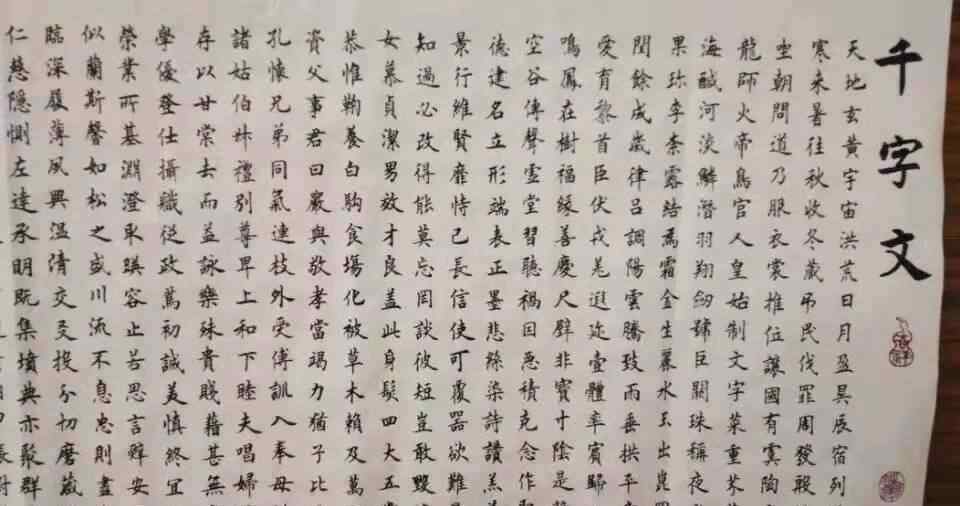 千字文
天地玄黄宇宙洪荒日月盈昃辰宿列
寒来暑往秋收冬藏吊民伐罪周發殷
坐朝問道乃服衣裳推位讓國有虞陶
龍師火帝鳥官人皇始制文字菜重芥
海鹹河淡鱗潛羽翔劒號巨闕珠稱夜
果珍李柰露結為霜金生麗水玉出崑
閏餘成歲律吕調陽雲騰致雨垂拱平
愛育黎首臣伏戎羌遐迩壹體率賓歸
鳴鳳在樹福緣善慶尺璧非寶寸陰是
空谷傳聲虚堂習聽禍因惡積克念作
德建名立形端表正墨悲絲染詩讚羔
景行維賢靡恃己長信使可覆器欲難
知過必改得能莫忘罔談彼短豈敢毀
女慕貞潔男效才良盖此身髮四大五
恭惟鞠養白駒食場化被草木賴及萬
資父事君曰嚴與敬孝當竭力猶子比
孔懷兄弟同氣連枝外受傅訓入奉母
諸姑伯叔禮别尊卑上和下睦夫唱婦
存以甘棠去而益詠樂殊貴賤藉甚無
學優登仕攝職從政篤初誠美慎終宜
榮業所基淵澄取暎容止若思言辭安
似蘭斯馨如松之盛川流不息忠則盡
臨深履薄夙興温凊交友投分切磨箴
仁慈隱惻左達承明既集墳典亦聚群